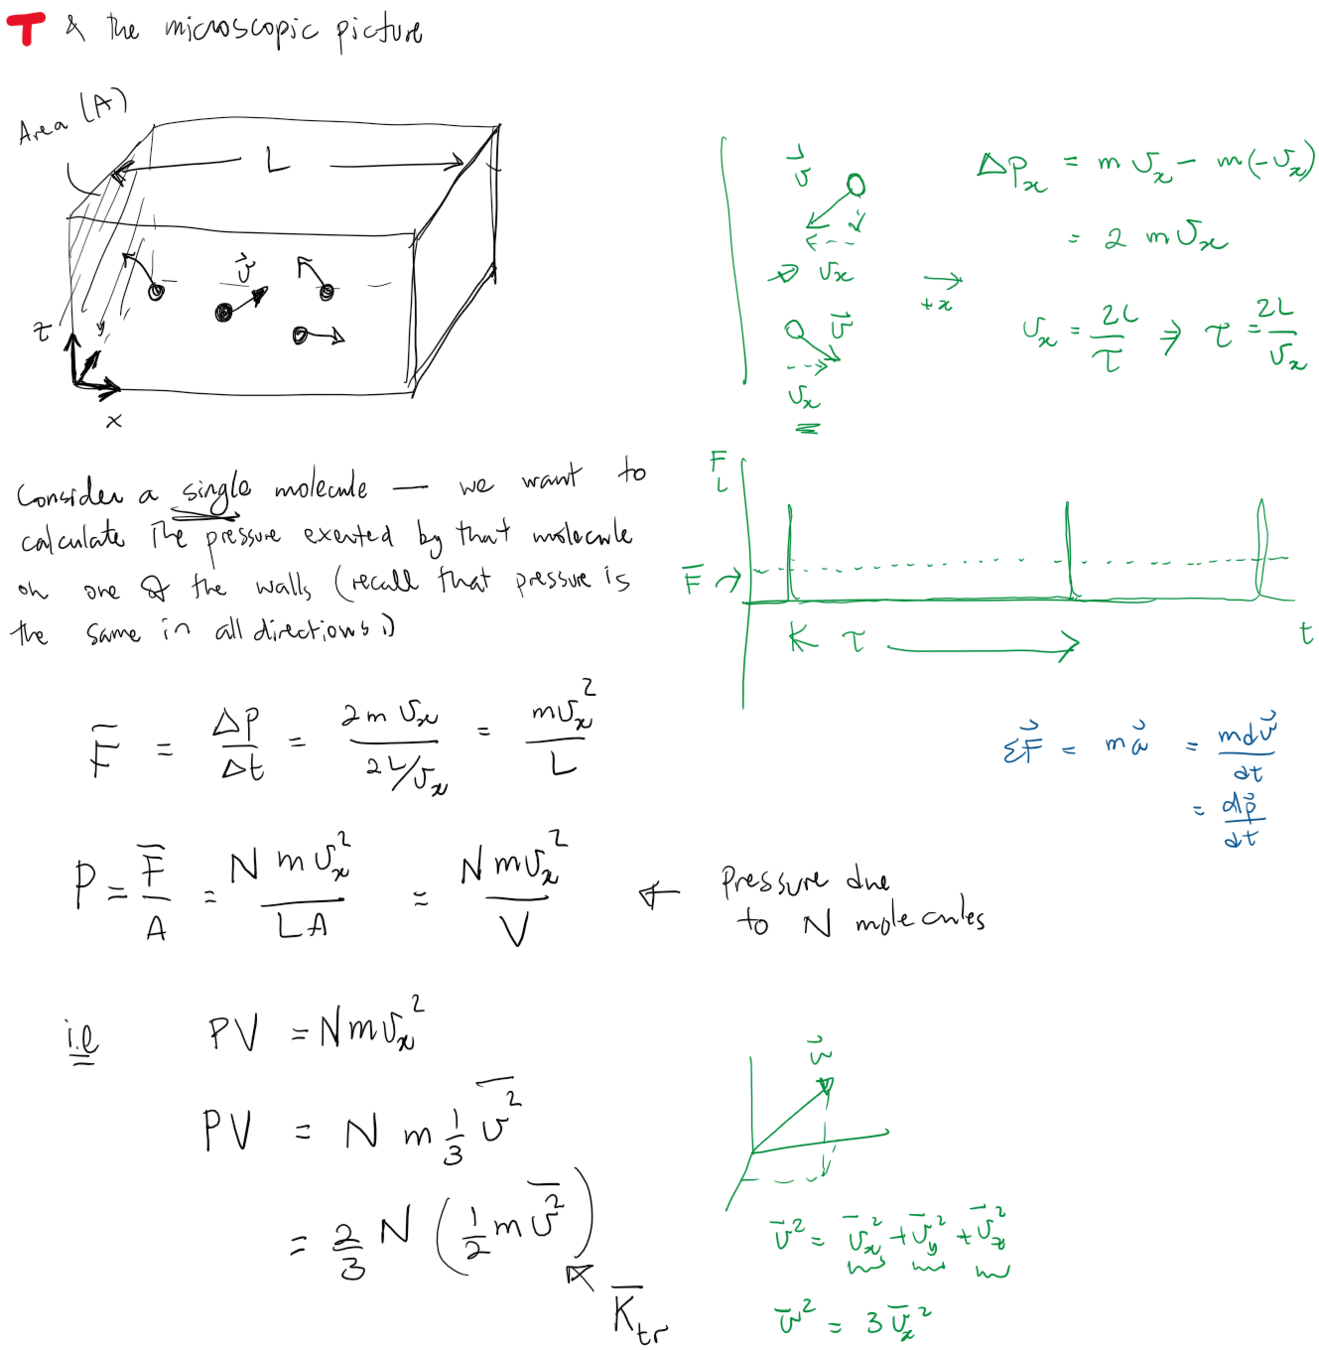 T & the microscopic picture
Area (A)
L
v⃗
z
y
x
v⃗
v_x
v⃗
v_x
→
+x
Δp_x = m v_x - m(-v_x)
= 2 m v_x
v_x = 2L/τ ⇒ τ = 2L/v_x
Consider a single molecule — we want to
calculate the pressure exerted by that molecule
on one of the walls (recall that pressure is
the same in all directions!)
F
F̄ →
τ
t
F̄ = Δp/Δt = 2m v_x / (2L/v_x) = m v_x²/L
ΣF⃗ = m a⃗ = m dv⃗/dt
= dp⃗/dt
P = F̄/A = N m v_x²/LA = N m v_x²/V ← Pressure due
to N molecules
i.e PV = N m v_x²
PV = N m 1/3 v̄²
= 2/3 N (1/2 m v̄²)
K̄_tr
v⃗
v̄² = v̄_x² + v̄_y² + v̄_z²
v̄² = 3 v̄_x²